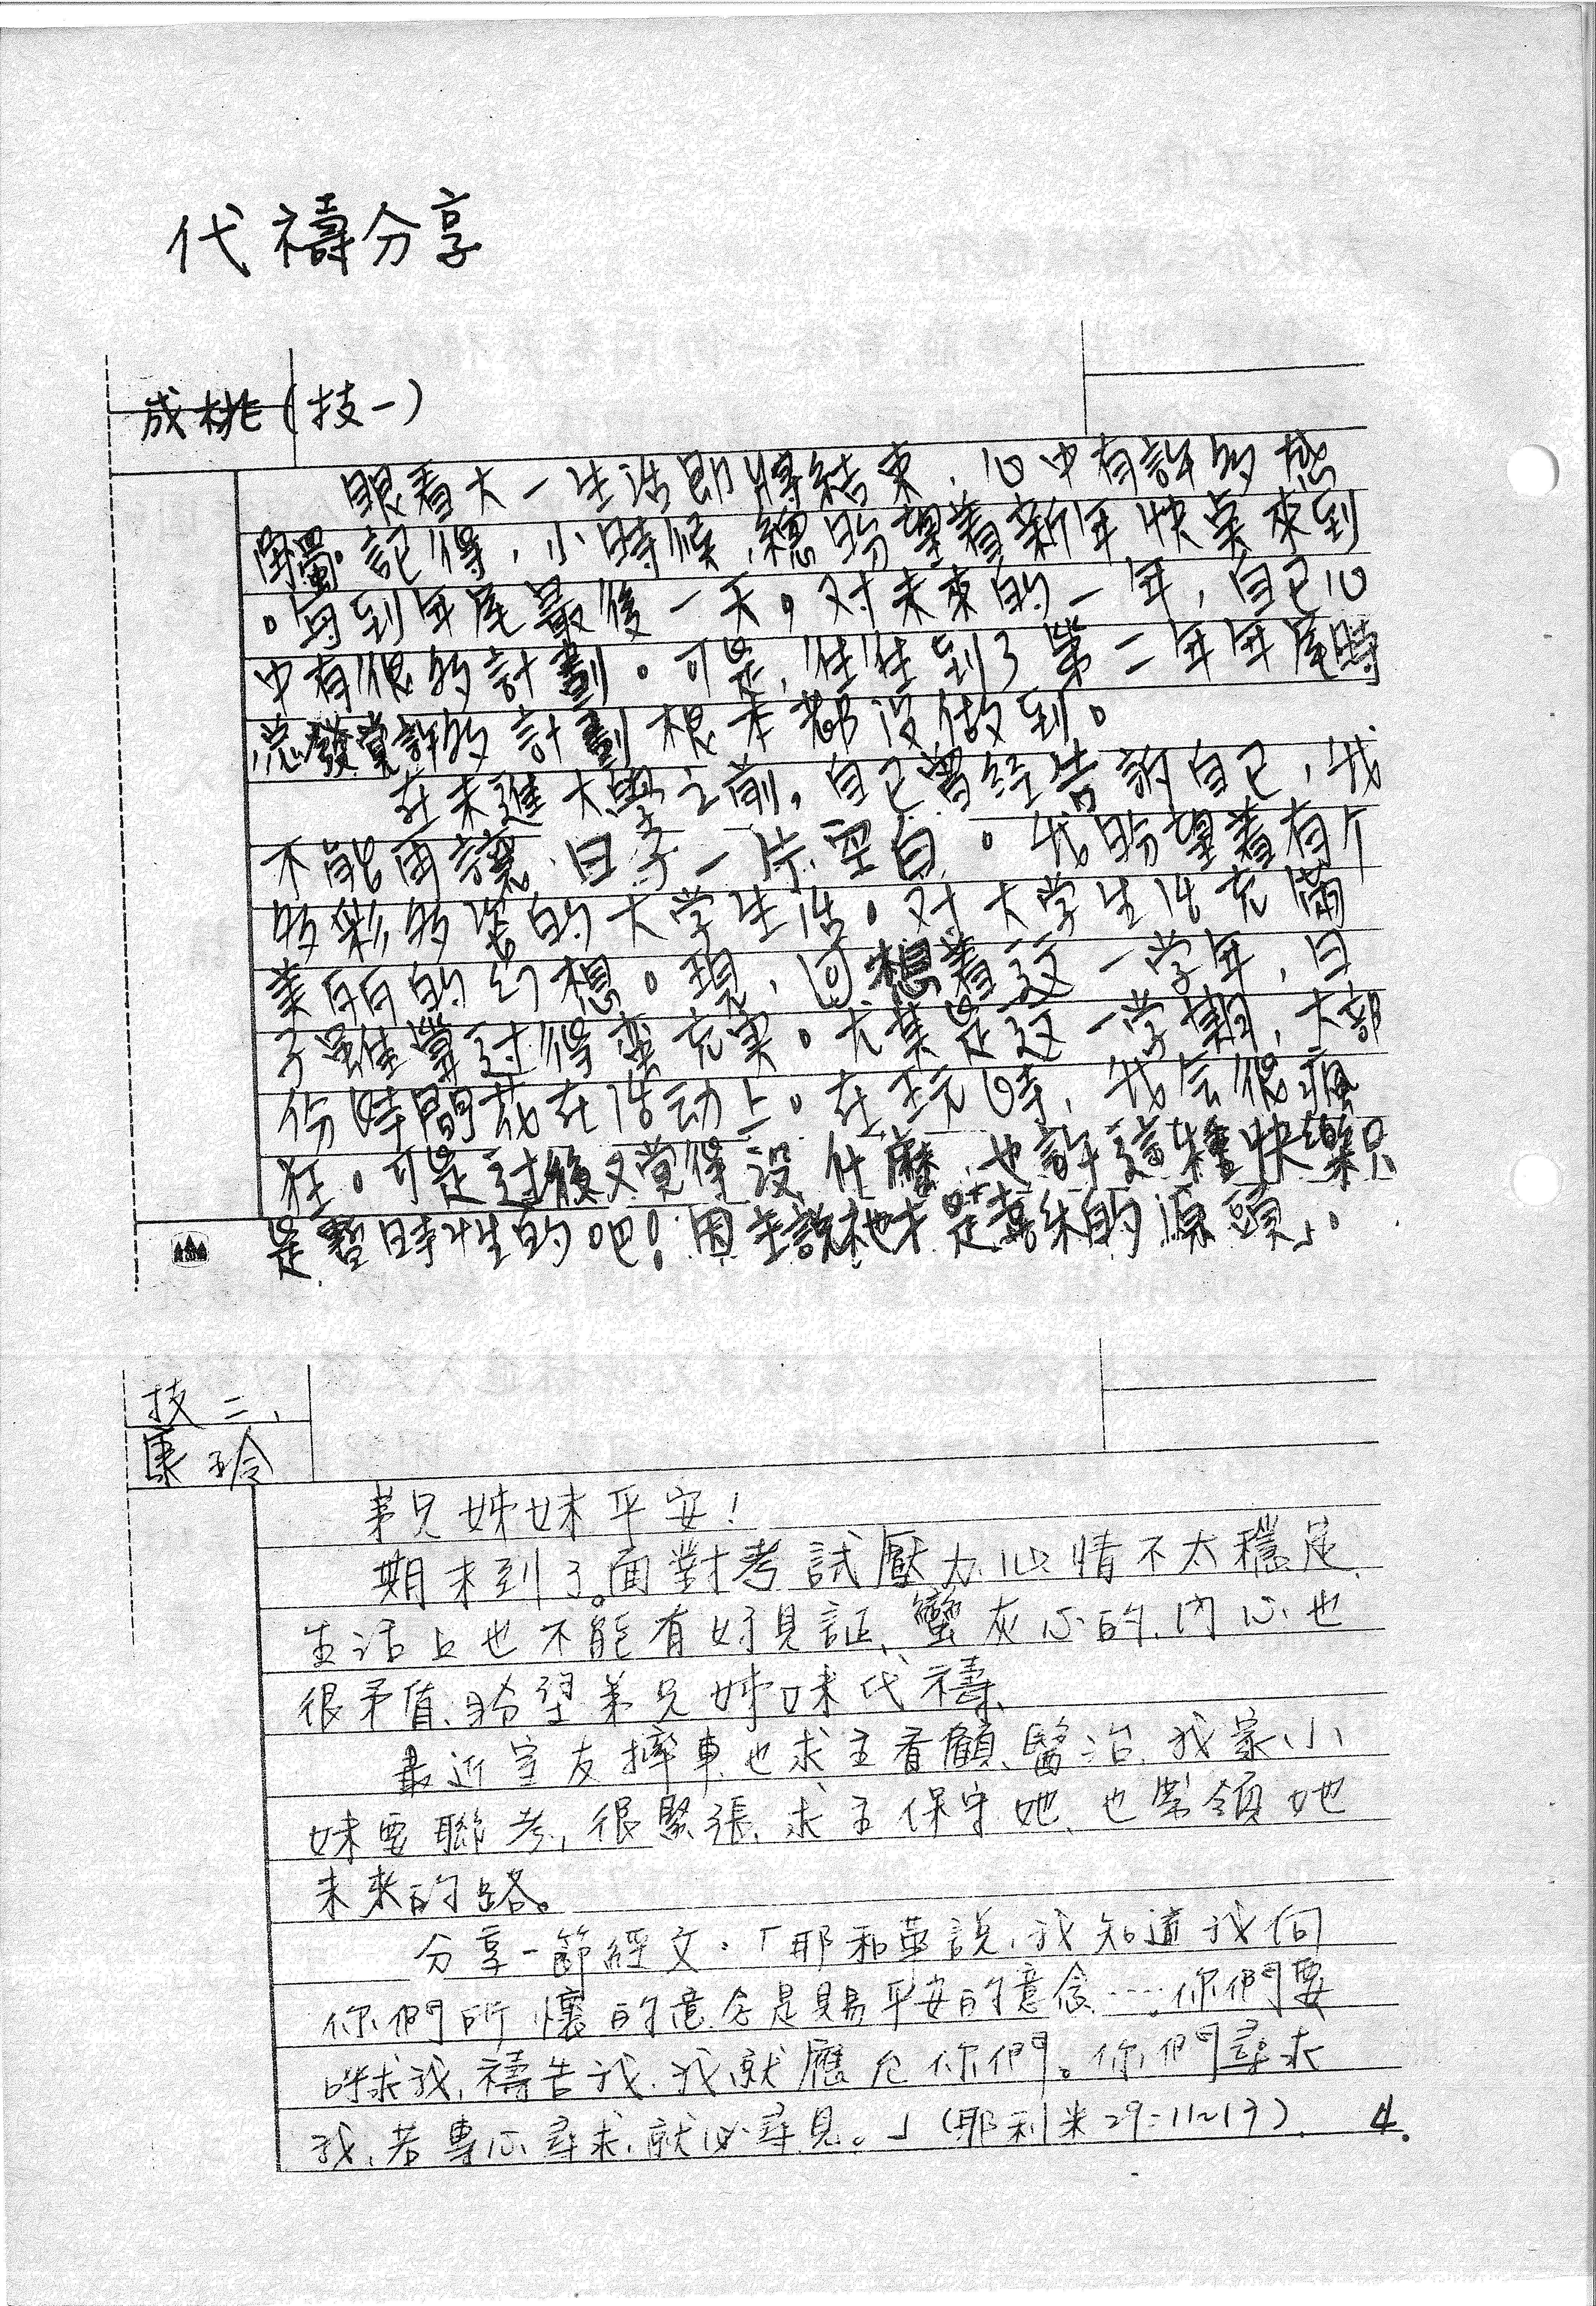 代禱分享
成桃(技一)
眼看大一生活即將結束,心中有許多感
觸。記得,小時候,總盼望着新年快点來到
。每到年尾最後一天。对未來的一年,自己心
中有很多計劃。可是,往往到了第二年年尾時
总發覺許多計劃根本都没做到。
在未進大學之前。自己曾经告訴自己,我
不能再讓日子一片空白。我盼望着有个
多彩多姿的大学生活。对大学生活充滿
美好的幻想。現,回想着这一学年,日
子還算过得蛮充実。尤其是这一学期,大部
份時間花在活动上。在玩時,我会很瘋
狂。可是过後又覚得没什麼,也許這種快樂只
是暫時性的吧!因主說祂才是喜乐的源頭。
技二、
康玲
弟兄姊妹平安!
期末到了。面對考試壓力心情不太穩定
生活上也不能有好見証、蠻灰心的、內心也
很矛盾、盼望弟兄姊妹代禱、
最近室友摔車也求主看顧、醫治、我家小
妹要聯考,很緊張、求主保守她、也帶領她
未來的路。
分享一節經文。「耶和華說,我知道我向
你們所懷的意念是賜平安的意念……你們要
呼求我,禱告我,我就應允你們。你們尋求
我,若專心尋求,就必尋見。」(耶利米29:11~13)
4.